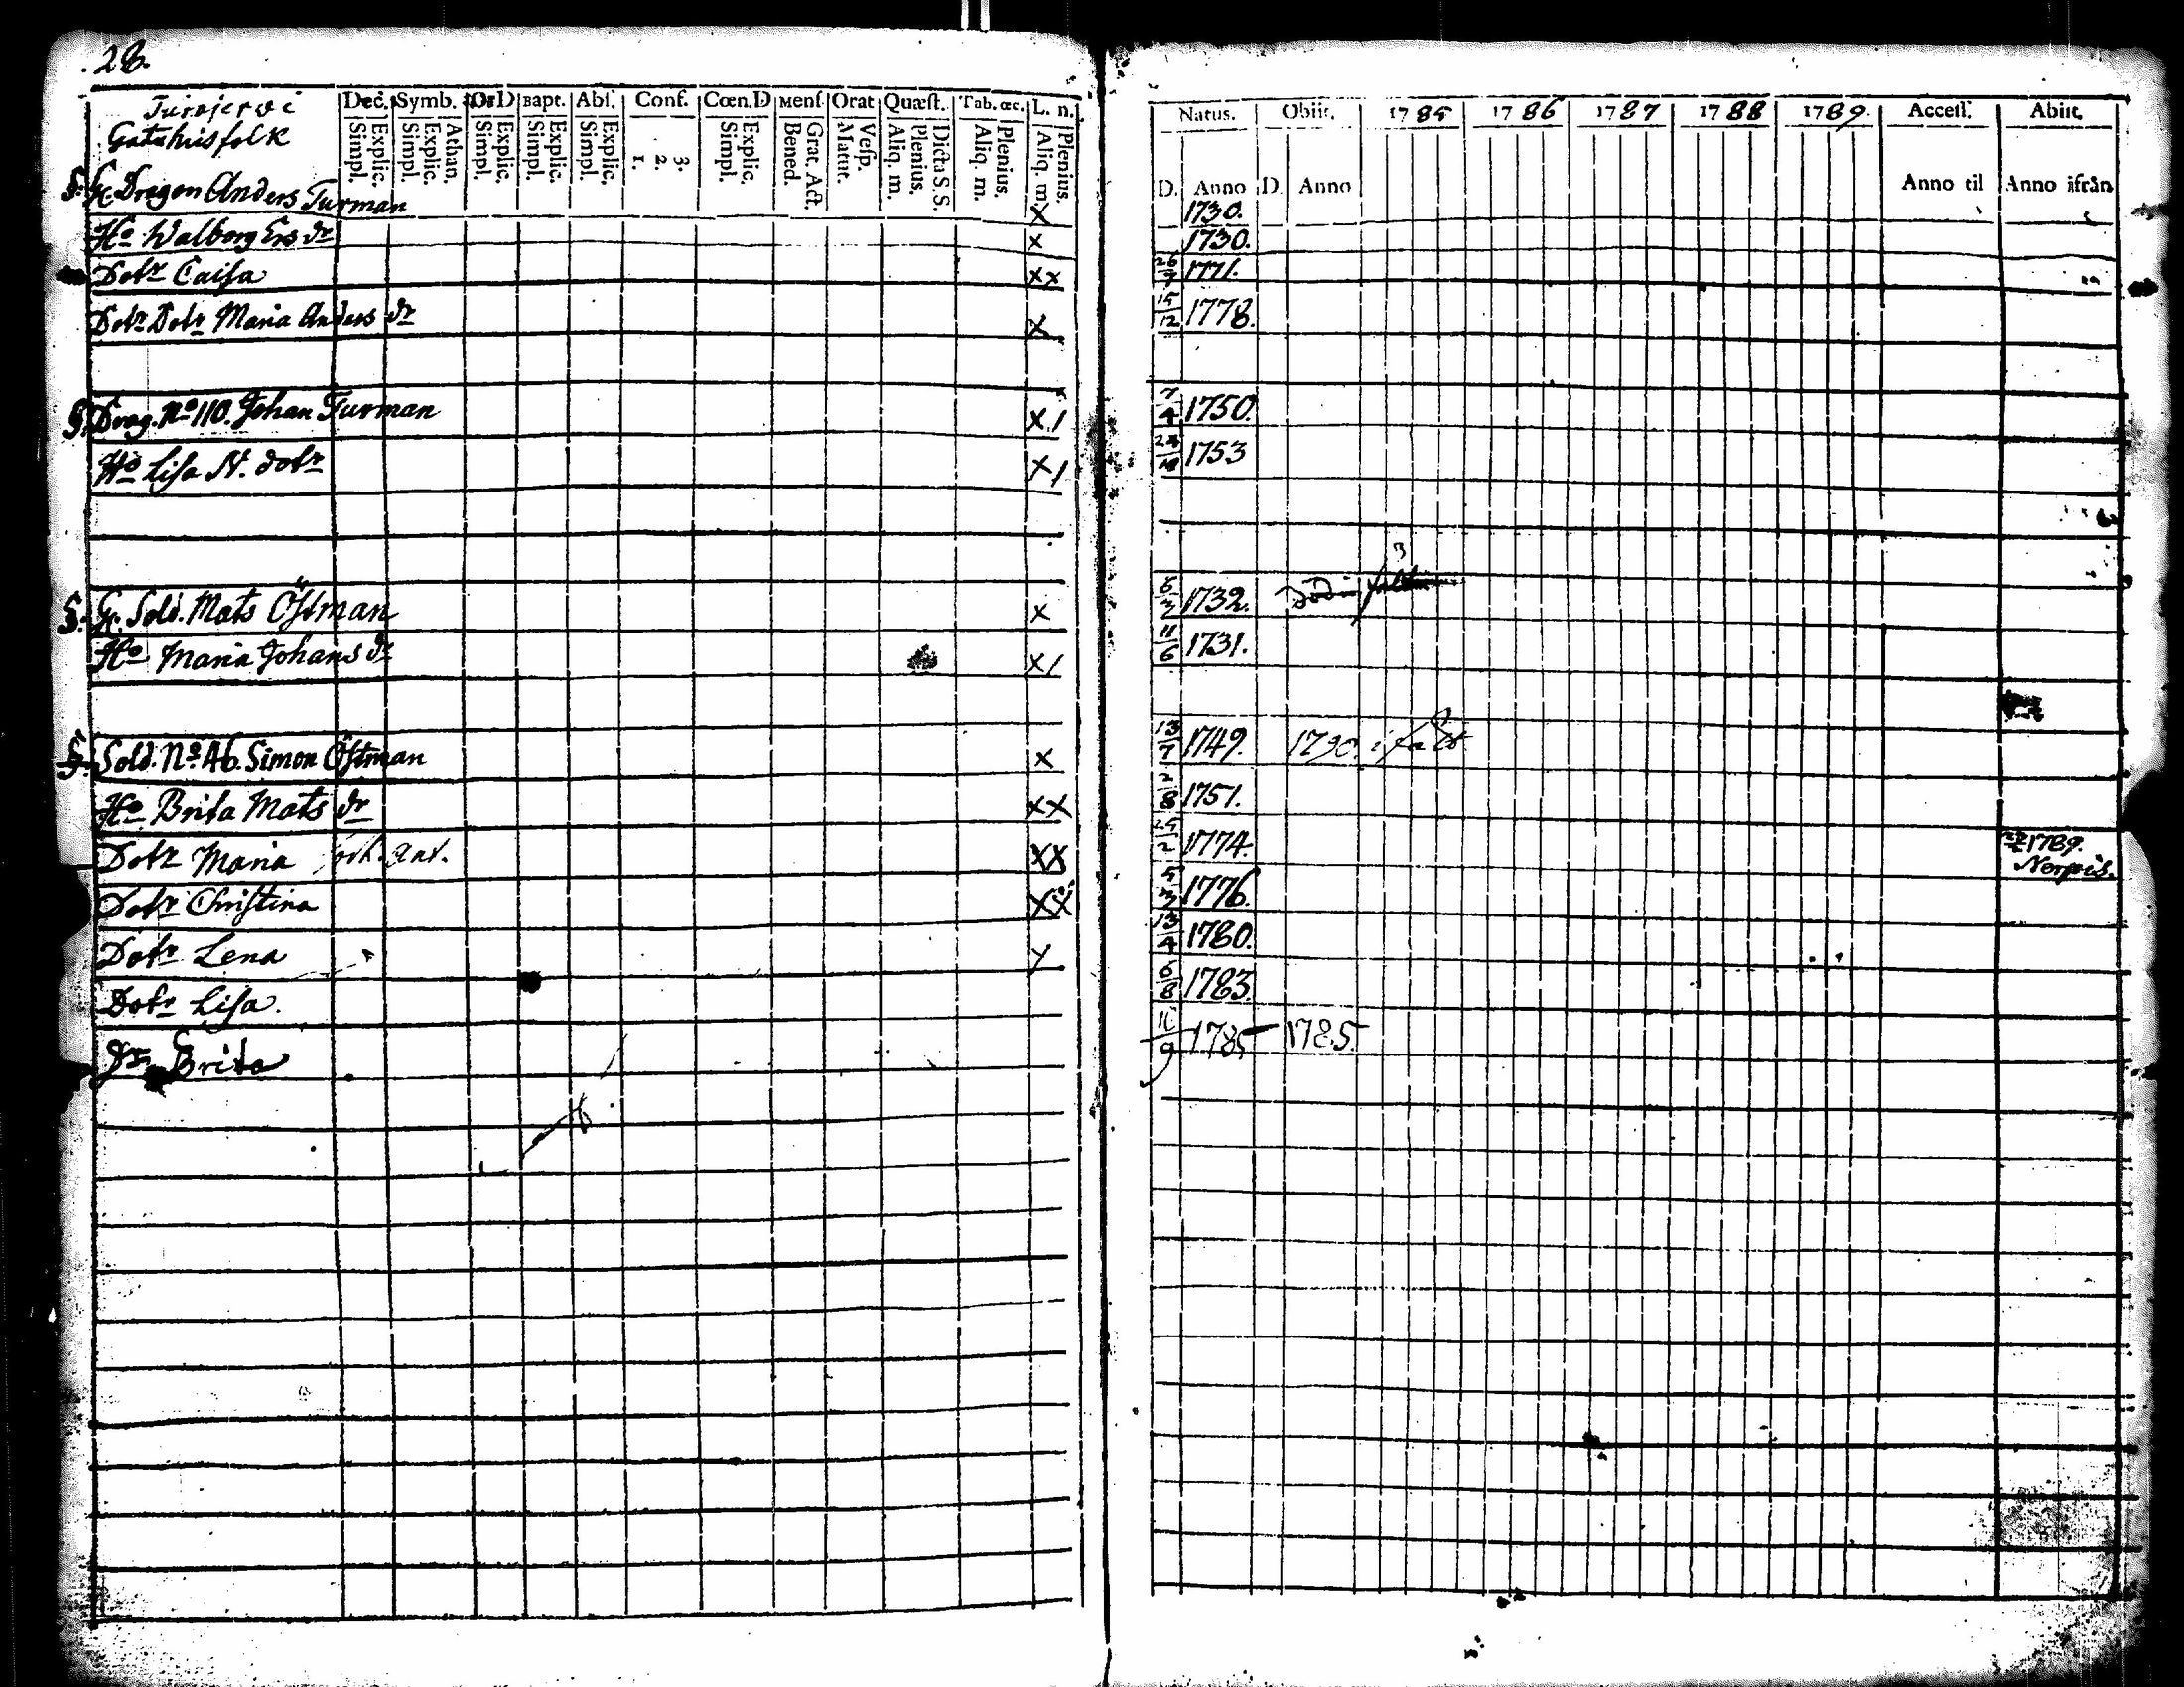 28.
Turajerwi
Gatuhusfolk
Dec. Symb. Or D Bapt. Abs. Conf. Cœn.D Mens. Orat Quæst. Tab. œc. L. n.
Simpl. Explic. Simpl. Explic. Athan. Simpl. Explic. Simpl. Explic. Simpl. Explic. 1. 2. 3. Simpl. Explic. Bened. Grat. Act. Matut. Vesp. Aliq. m. Plenius. Dicta S. S. Aliq. m. Plenius. Aliq. m. Plenius.
Natus. Obiit. 1785 1786 1787 1788 1789. Access. Abiit.
D. Anno D. Anno Anno til Anno ifrån
G. Dragon Anders Turman x 1730.
Ho Walborg Ers dr x 1730.
Dotr Caisa xx 26/9 1771.
Dotr Dotr Maria Anders dr x 15/12 1778.
Drag. No 110. Johan Turman x1 7/4 1750.
Ho Lisa N. dotr x1 1753
G. Sold. Mats Östman x 1732. Död i
Ho Maria Johans dr x1 11/6 1731.
Sold. No 46. Simon Östman x 13/7 1749. i fält
Ho Brita Mats dr xx 2/8 1751.
Dotr Maria xx 1774. 1789.
Nerpis.
Dotr Christina xx 5/3 1776.
Dotr Lena 13/4 1780.
Dotr Lisa. 6/8 1783.
Dr Brita 1785 1785